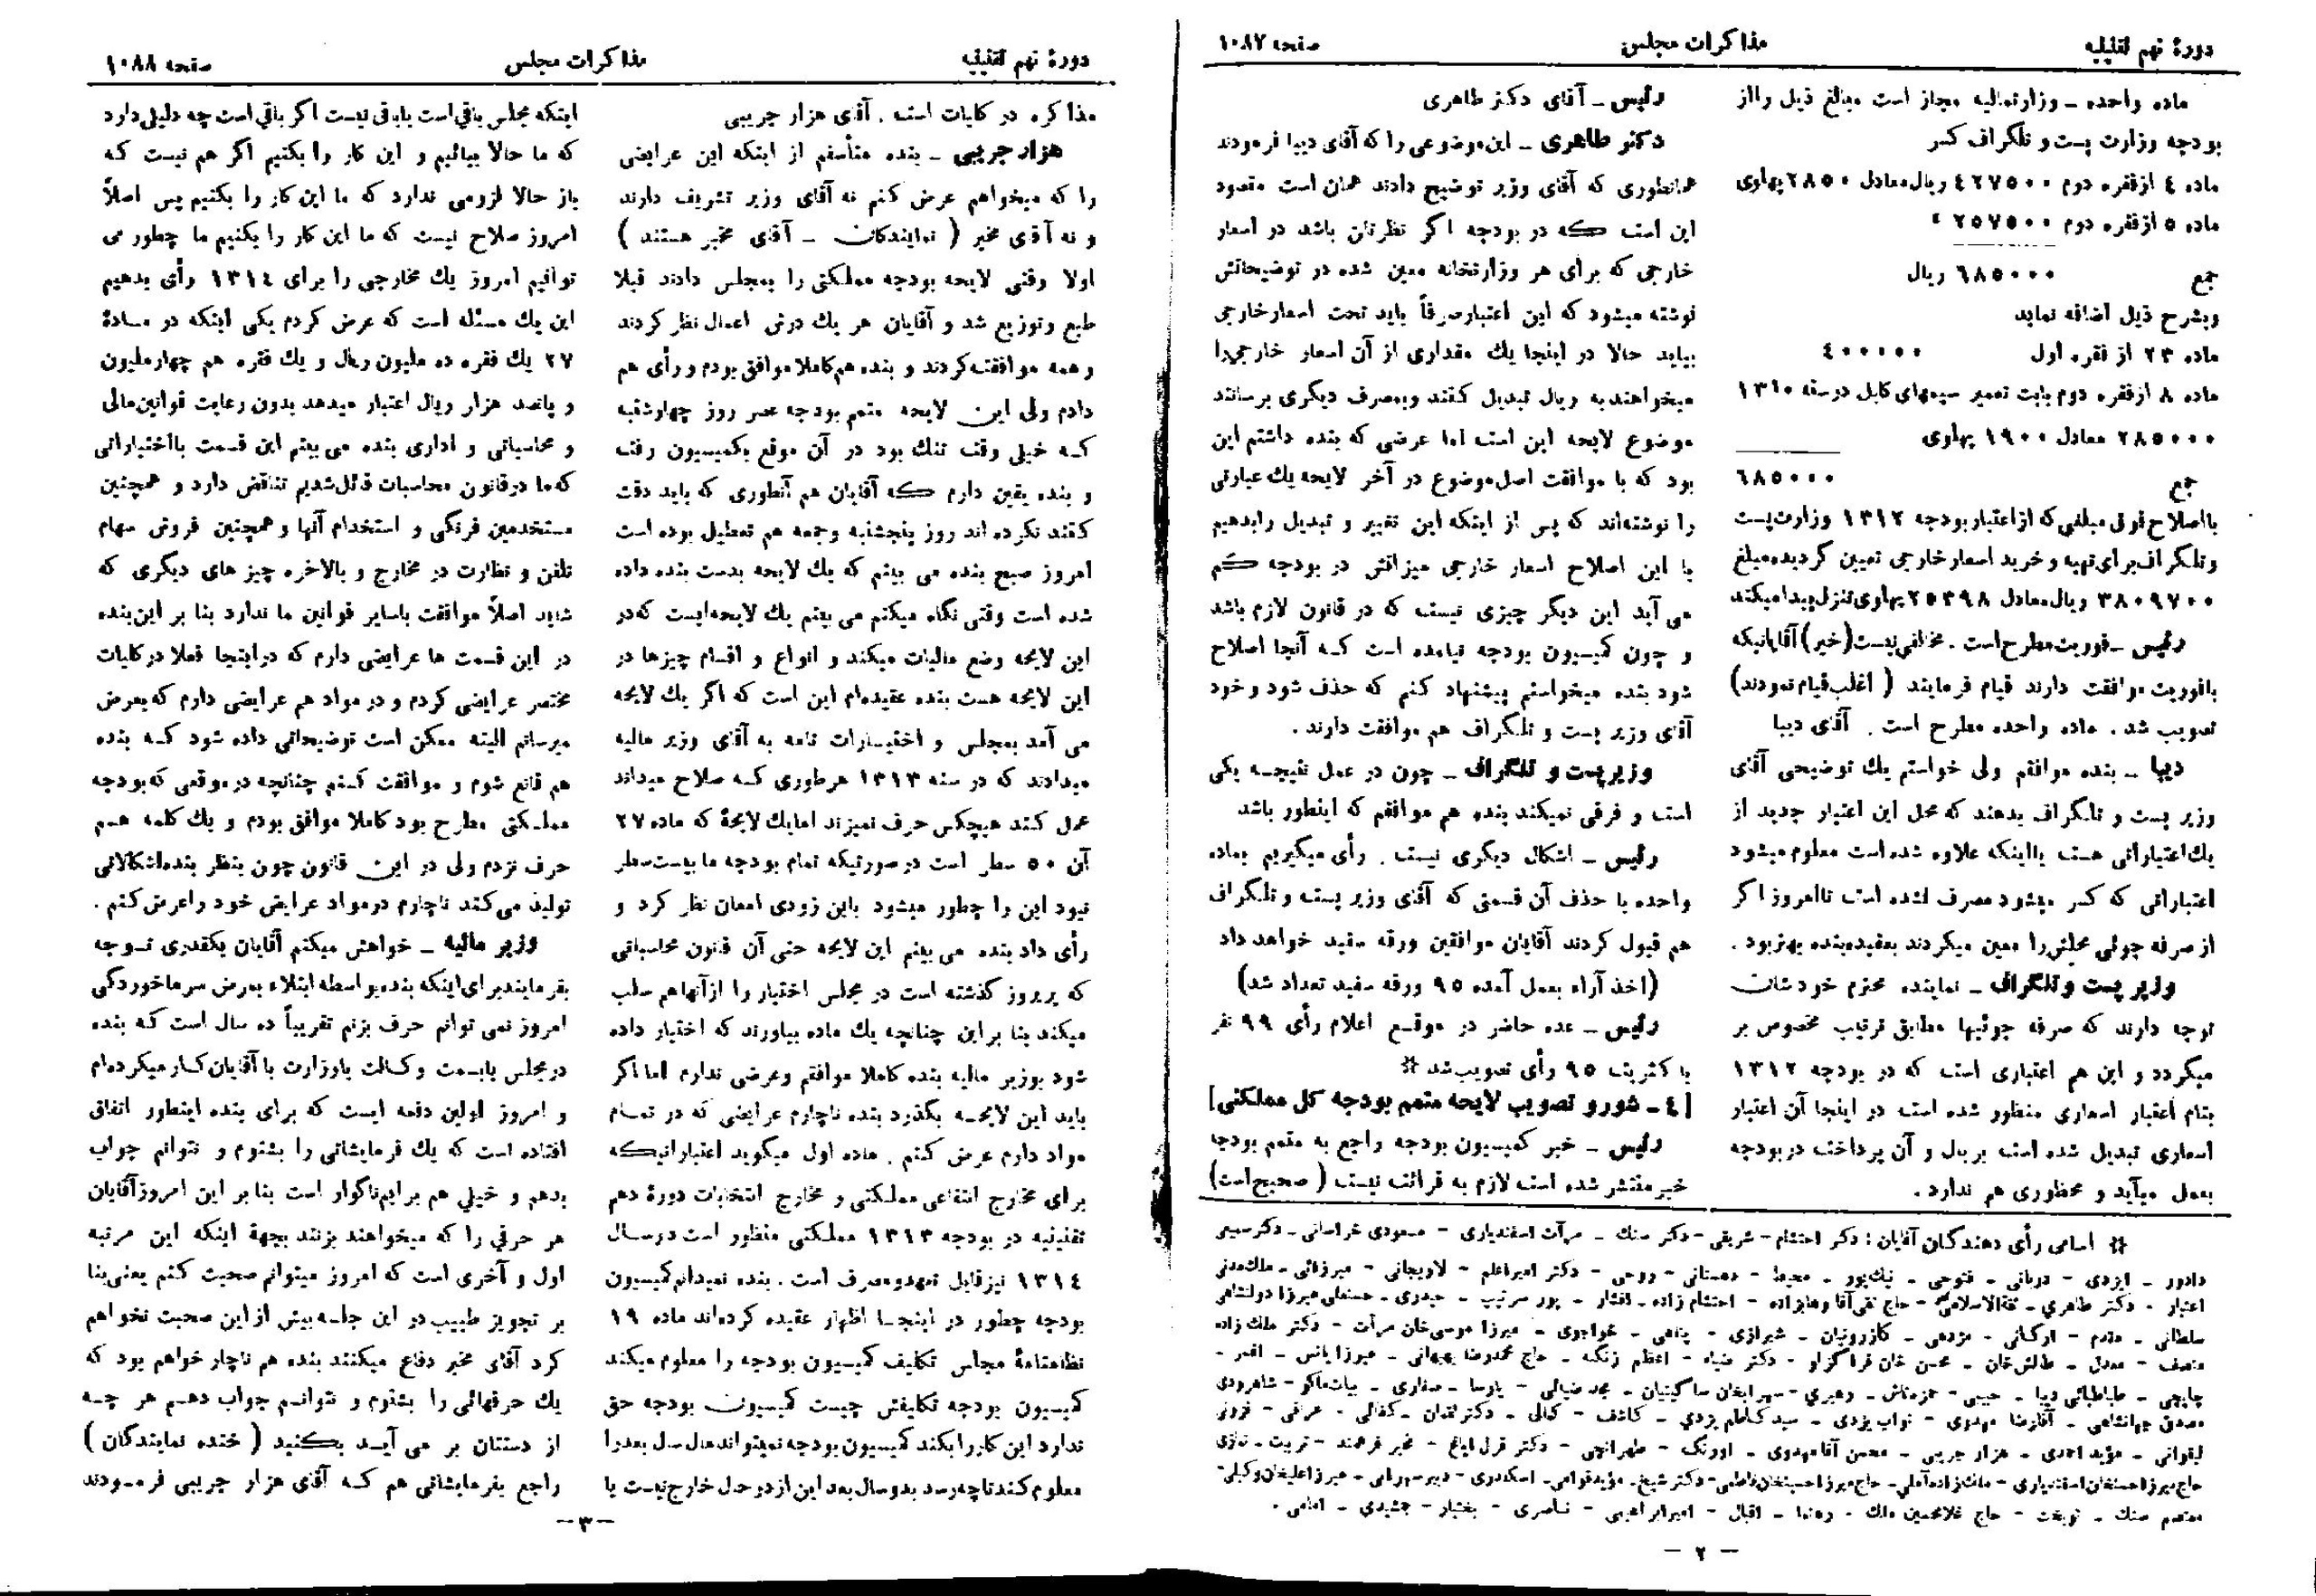 دورهٔ نهم تقنینیه
مذاکرات مجلس
صفحه ۱۰۸۷
ماده واحده ـ وزارتمالیه مجاز است مبالغ ذیل رااز
بودجه وزارت پست و تلگراف کسر
ماده ٤ ازفقره دوم ٤۲۷۵۰۰ ریال معادل ۲۸۵۰ پهلوی
ماده ۵ ازفقره دوم ۲۵۷۵۰۰ »
جمع ٦۸۵۰۰۰ ریال
وبشرح ذیل اضافه نماید
ماده ۲۳ از فقره اول ٤۰۰۰۰۰
ماده ۸ ازفقره دوم بابت تعمیر سیمهای کابل درسنه ۱۳۱۰
۲۸۵۰۰۰ معادل ۱۹۰۰ پهلوی
جمع ٦۸۵۰۰۰
بااصلاح فوق مبلغی که ازاعتبار بودجه ۱۳۱۲ وزارت پست
وتلگراف برای تهیه و خرید اسعار خارجی تعیین گردیده مبلغ
۳۸۰۹۷۰۰ ریال معادل ۲۵۳۹۸ پهلوی تنزل پیدا میکند
رئیس ـ فوریت مطرح است . مخالفی نیست (خیر) آقایانیکه
بافوریت موافقت دارند قیام فرمایند ( اغلب قیام نمودند)
تصویب شد . ماده واحده مطرح است . آقای دیبا
دیبا ـ بنده موافقم ولی خواستم یك توضیحی آقای
وزیر پست و تلگراف بدهند که محل این اعتبار جدید از
یك اعتباراتی هست یااینکه علاوه شده است معلوم میشود
اعتباراتی که کسر میشود مصرف نشده است تاامروز اگر
از صرفه جوئی محلش را معین میکردند بعقیده بنده بهتر بود .
وزیر پست وتلگراف ـ نماینده محترم خودشان
توجه دارند که صرفه جوئیها مطابق ترتیب مخصوص بر
میگردد و این هم اعتباری است که در بودجه ۱۳۱۲
بنام اعتبار اسعاری منظور شده است در اینجا آن اعتبار
اسعاری تبدیل شده است بریال و آن پرداخت در بودجه
بعمل میآید و محظوری هم ندارد .
رئیس ـ آقای دکتر طاهری
دکتر طاهری ـ این موضوعی را که آقای دیبا فرمودند
همانطوری که آقای وزیر توضیح دادند همان است مقصود
این است که در بودجه اگر نظرتان باشد در اسعار
خارجی که برای هر وزارتخانه معین شده در توضیحاتش
نوشته میشود که این اعتبار صرفاً باید تحت اسعار خارجی
بیاید حالا در اینجا یك مقداری از آن اسعار خارجی را
میخواهند به ریال تبدیل کنند وبمصرف دیگری برسانند
موضوع لایحه این است اما عرضی که بنده داشتم این
بود که با موافقت اصل موضوع در آخر لایحه یك عبارتی
را نوشته‌اند که پس از اینکه این تغییر و تبدیل رابدهیم
با این اصلاح اسعار خارجی میزانش در بودجه کم
می آید این دیگر چیزی نیست که در قانون لازم باشد
و چون کمیسیون بودجه نیامده است که آنجا اصلاح
شود بنده میخواستم پیشنهاد کنم که حذف شود وخود
آقای وزیر پست و تلگراف هم موافقت دارند .
وزیر پست و تلگراف ـ چون در عمل نتیجه یکی
است و فرقی نمیکند بنده هم موافقم که اینطور باشد
رئیس ـ اشکال دیگری نیست . رأی میگیریم بماده
واحده با حذف آن قسمتی که آقای وزیر پست و تلگراف
هم قبول کردند آقایان موافقین ورقه سفید خواهد داد
(اخذ آراء بعمل آمده ۹۵ ورقه سفید تعداد شد)
رئیس ـ عده حاضر در موقع اعلام رأی ۹۹ نفر
با کثریت ۹۵ رأی تصویب شد *
[٤ ـ شور و تصویب لایحه متمم بودجه کل مملکتی]
رئیس ـ خبر کمیسیون بودجه راجع به متمم بودجه
خبر منتشر شده است لازم به قرائت نیست ( صحیح است)
* اسامی رأی دهندگان آقایان : دکتر احتشام – شریفی – دکتر سنك ـ مرآت اسفندیاری – مسعودی خراسانی ـ دکتر سمیعی
دادور ـ ایزدی – دربانی ـ فتوحی ـ نیك‌پور ـ محیط – دهستانی – روحی – دکتر امیراعلم – لاریجانی – میرزائی ـ ملك‌مدنی
اعتبار ـ دکتر طاهری ـ ثقةالاسلامی – حاج تقی آقا وهابزاده – احتشام زاده ـ افشار ـ پور سرتیپ – حیدری ـ حسنعلی میرزا دولتشاهی
سلطانی ـ مقدم – اورکانی – مژدهی – کازرونیان – شیرازی – پناهی – خواجوی – میرزا موسی‌خان مرآت – دکتر ملك زاده
منصف – معدل – طالش‌خان – محسن خان قراگزلو – دکتر ضیاء – اعظم زنگنه – حاج محمدرضا بهبهانی – میرزا یانس – افسر –
چایچی – طباطبائی دیبا ـ حبیبی – حمزه‌تاش – رهبری – سهراب‌خان ساکینیان – مجد ضیائی – پارسا – صفاری – بیات‌ماکو – شاهرودی
مصدق جهانشاهی ـ آقارضا مهدوی – نواب یزدی ـ سید کاظم یزدی ـ کاشف – کمالی ـ دکتر لقمان ـ کفائی ـ عراقی – فزونی
لیقوانی – مؤید احمدی ـ هزار جریبی ـ محسن آقا مهدوی ـ اورنگ – طهرانچی – دکتر قزل ایاغ – مخبر فرهمند – تربیت ـ نمازی
حاج میرزا حسنخان اسفندیاری – ملك‌زاده آملی – حاج میرزا حسینخان فاطمی – دکتر شیخ ـ مؤید قوامی ـ اسکندری – دبیر سهرابی – میرزا علیخان وکیلی –
معتصم سنك ـ نوبخت – حاج غلامحسین ملك – رهنما ـ اقبال – امیر ابراهیمی – ناصری – بختیار – جمشیدی – امامی .
– ۲ –
دورهٔ نهم تقنینیه
مذاکرات مجلس
صفحه ۱۰۸۸
مذاکره در کلیات است . آقای هزار جریبی
هزارجریبی ـ بنده متأسفم از اینکه این عرایضی
را که میخواهم عرض کنم نه آقای وزیر تشریف دارند
و نه آقای مخبر ( نمایندگان ـ آقای مخبر هستند )
اولا وقتی لایحه بودجه مملکتی را بمجلس دادند قبلا
طبع وتوزیع شد و آقایان هر یك درش اعمال نظر کردند
وهمه موافقت کردند و بنده هم کاملا موافق بودم و رأی هم
دادم ولی این لایحه متمم بودجه عصر روز چهارشنبه
که خیلی وقت تنك بود در آن موقع بکمیسیون رفت
و بنده یقین دارم که آقایان هم آنطوری که باید دقت
کنند نکرده اند روز پنجشنبه وجمعه هم تعطیل بوده است
امروز صبح بنده می بینم که یك لایحه بدست بنده داده
شده است وقتی نگاه میکنم می بینم یك لایحه‌ایست که‌در
این لایحه وضع مالیات میکند و انواع و اقسام چیزها در
این لایحه هست بنده عقیده‌ام این است که اگر یك لایحه
می آمد بمجلس و اختیارات تامه به آقای وزیر مالیه
میدادند که در سنه ۱۳۱۳ هرطوری که صلاح میداند
عمل کند هیچکس حرف نمیزند امایك لایحهٔ که ماده ۲۷
آن ۵۰ سطر است در صورتیکه تمام بودجه ما بیست سطر
نبود این را چطور میشود باین زودی امعان نظر کرد و
رأی داد بنده می بینم این لایحه حتی آن قانون محاسباتی
که پریروز گذشته است در مجلس اختیار را ازآنهاهم سلب
میکند بنا براین چنانچه یك ماده بیاورند که اختیار داده
شود بوزیر مالیه بنده کاملا موافقم وعرضی ندارم اما اگر
باید این لایحه بگذرد بنده ناچارم عرایضی که در تمام
مواد دارم عرض کنم . ماده اول میگوید اعتباراتیکه
برای مخارج انتفاعی مملکتی و مخارج انتخابات دورهٔ دهم
تقنینیه در بودجه ۱۳۱۳ مملکتی منظور است درسال
۱۳۱٤ نیز قابل تعهدومصرف است . بنده نمیدانم کمیسیون
بودجه چطور در اینجا اظهار عقیده کرده‌اند ماده ۱۹
نظامنامهٔ مجلس تکلیف کمیسیون بودجه را معلوم میکند
کمیسیون بودجه تکلیفش چیست کمیسیون بودجه حق
ندارد این کاررابکند کمیسیون بودجه نمیتواند مال سال بعدرا
معلوم کند تاچه رسد بدو سال بعد این ازدوحال خارج نیست یا
اینکه مجلس باقی است یاباقی نیست اگر باقی است چه دلیلی دارد
که ما حالا بیائیم و این کار را بکنیم اگر هم نیست که
باز حالا لزومی ندارد که ما این کار را بکنیم پس اصلاً
امروز صلاح نیست که ما این کار را بکنیم ما چطور می
توانیم امروز یك مخارجی را برای ۱۳۱٤ رأی بدهیم
این یك مسئله است که عرض کردم یکی اینکه در مادهٔ
۲۷ یك فقره ده ملیون ریال و یك فقره هم چهار ملیون
و پانصد هزار ریال اعتبار میدهد بدون رعایت قوانین مالی
و محاسباتی و اداری بنده می بینم این قسمت بااختیاراتی
که‌ما درقانون محاسبات قائل شدیم تناقض دارد و همچنین
مستخدمین فرنگی و استخدام آنها و همچنین فروش سهام
تلفن و نظارت در مخارج و بالاخره چیز های دیگری که
شاید اصلاً موافقت باسایر قوانین ما ندارد بنا بر این بنده
در این قسمت ها عرایضی دارم که دراینجا فعلا درکلیات
مختصر عرایضی کردم و در مواد هم عرایضی دارم که بعرض
میرسانم البته ممکن است توضیحاتی داده شود که بنده
هم قانع شوم و موافقت کنم چنانچه در موقعی که بودجه
مملکتی مطرح بود کاملا موافق بودم و یك کلمه هم
حرف نزدم ولی در این قانون چون بنظر بنده اشکالاتی
تولید می‌کند ناچارم درمواد عرایض خود راعرض کنم .
وزیر مالیه ـ خواهش میکنم آقایان یکقدری توجه
بفرمایند برای اینکه بنده بواسطه ابتلاء بمرض سرماخوردگی
امروز نمی توانم حرف بزنم تقریباً ده سال است که بنده
درمجلس یابسمت وکالت یاوزارت با آقایان کار میکرده‌ام
و امروز اولین دفعه ایست که برای بنده اینطور اتفاق
افتاده است که یك فرمایشاتی را بشنوم و نتوانم جواب
بدهم و خیلی هم برایم ناگوار است بنا بر این امروز آقایان
هر حرفی را که میخواهند بزنند بجهة اینکه این مرتبه
اول و آخری است که امروز میتوانم صحبت کنم یعنی بنا
بر تجویز طبیب در این جلسه بیش از این صحبت نخواهم
کرد آقای مخبر دفاع میکنند بنده هم ناچار خواهم بود که
یك حرفهائی را بشنوم و نتوانم جواب دهم هر چه
از دستتان بر می آید بکنید ( خنده نمایندگان )
راجع بفرمایشاتی هم که آقای هزار جریبی فرمودند
–۳–